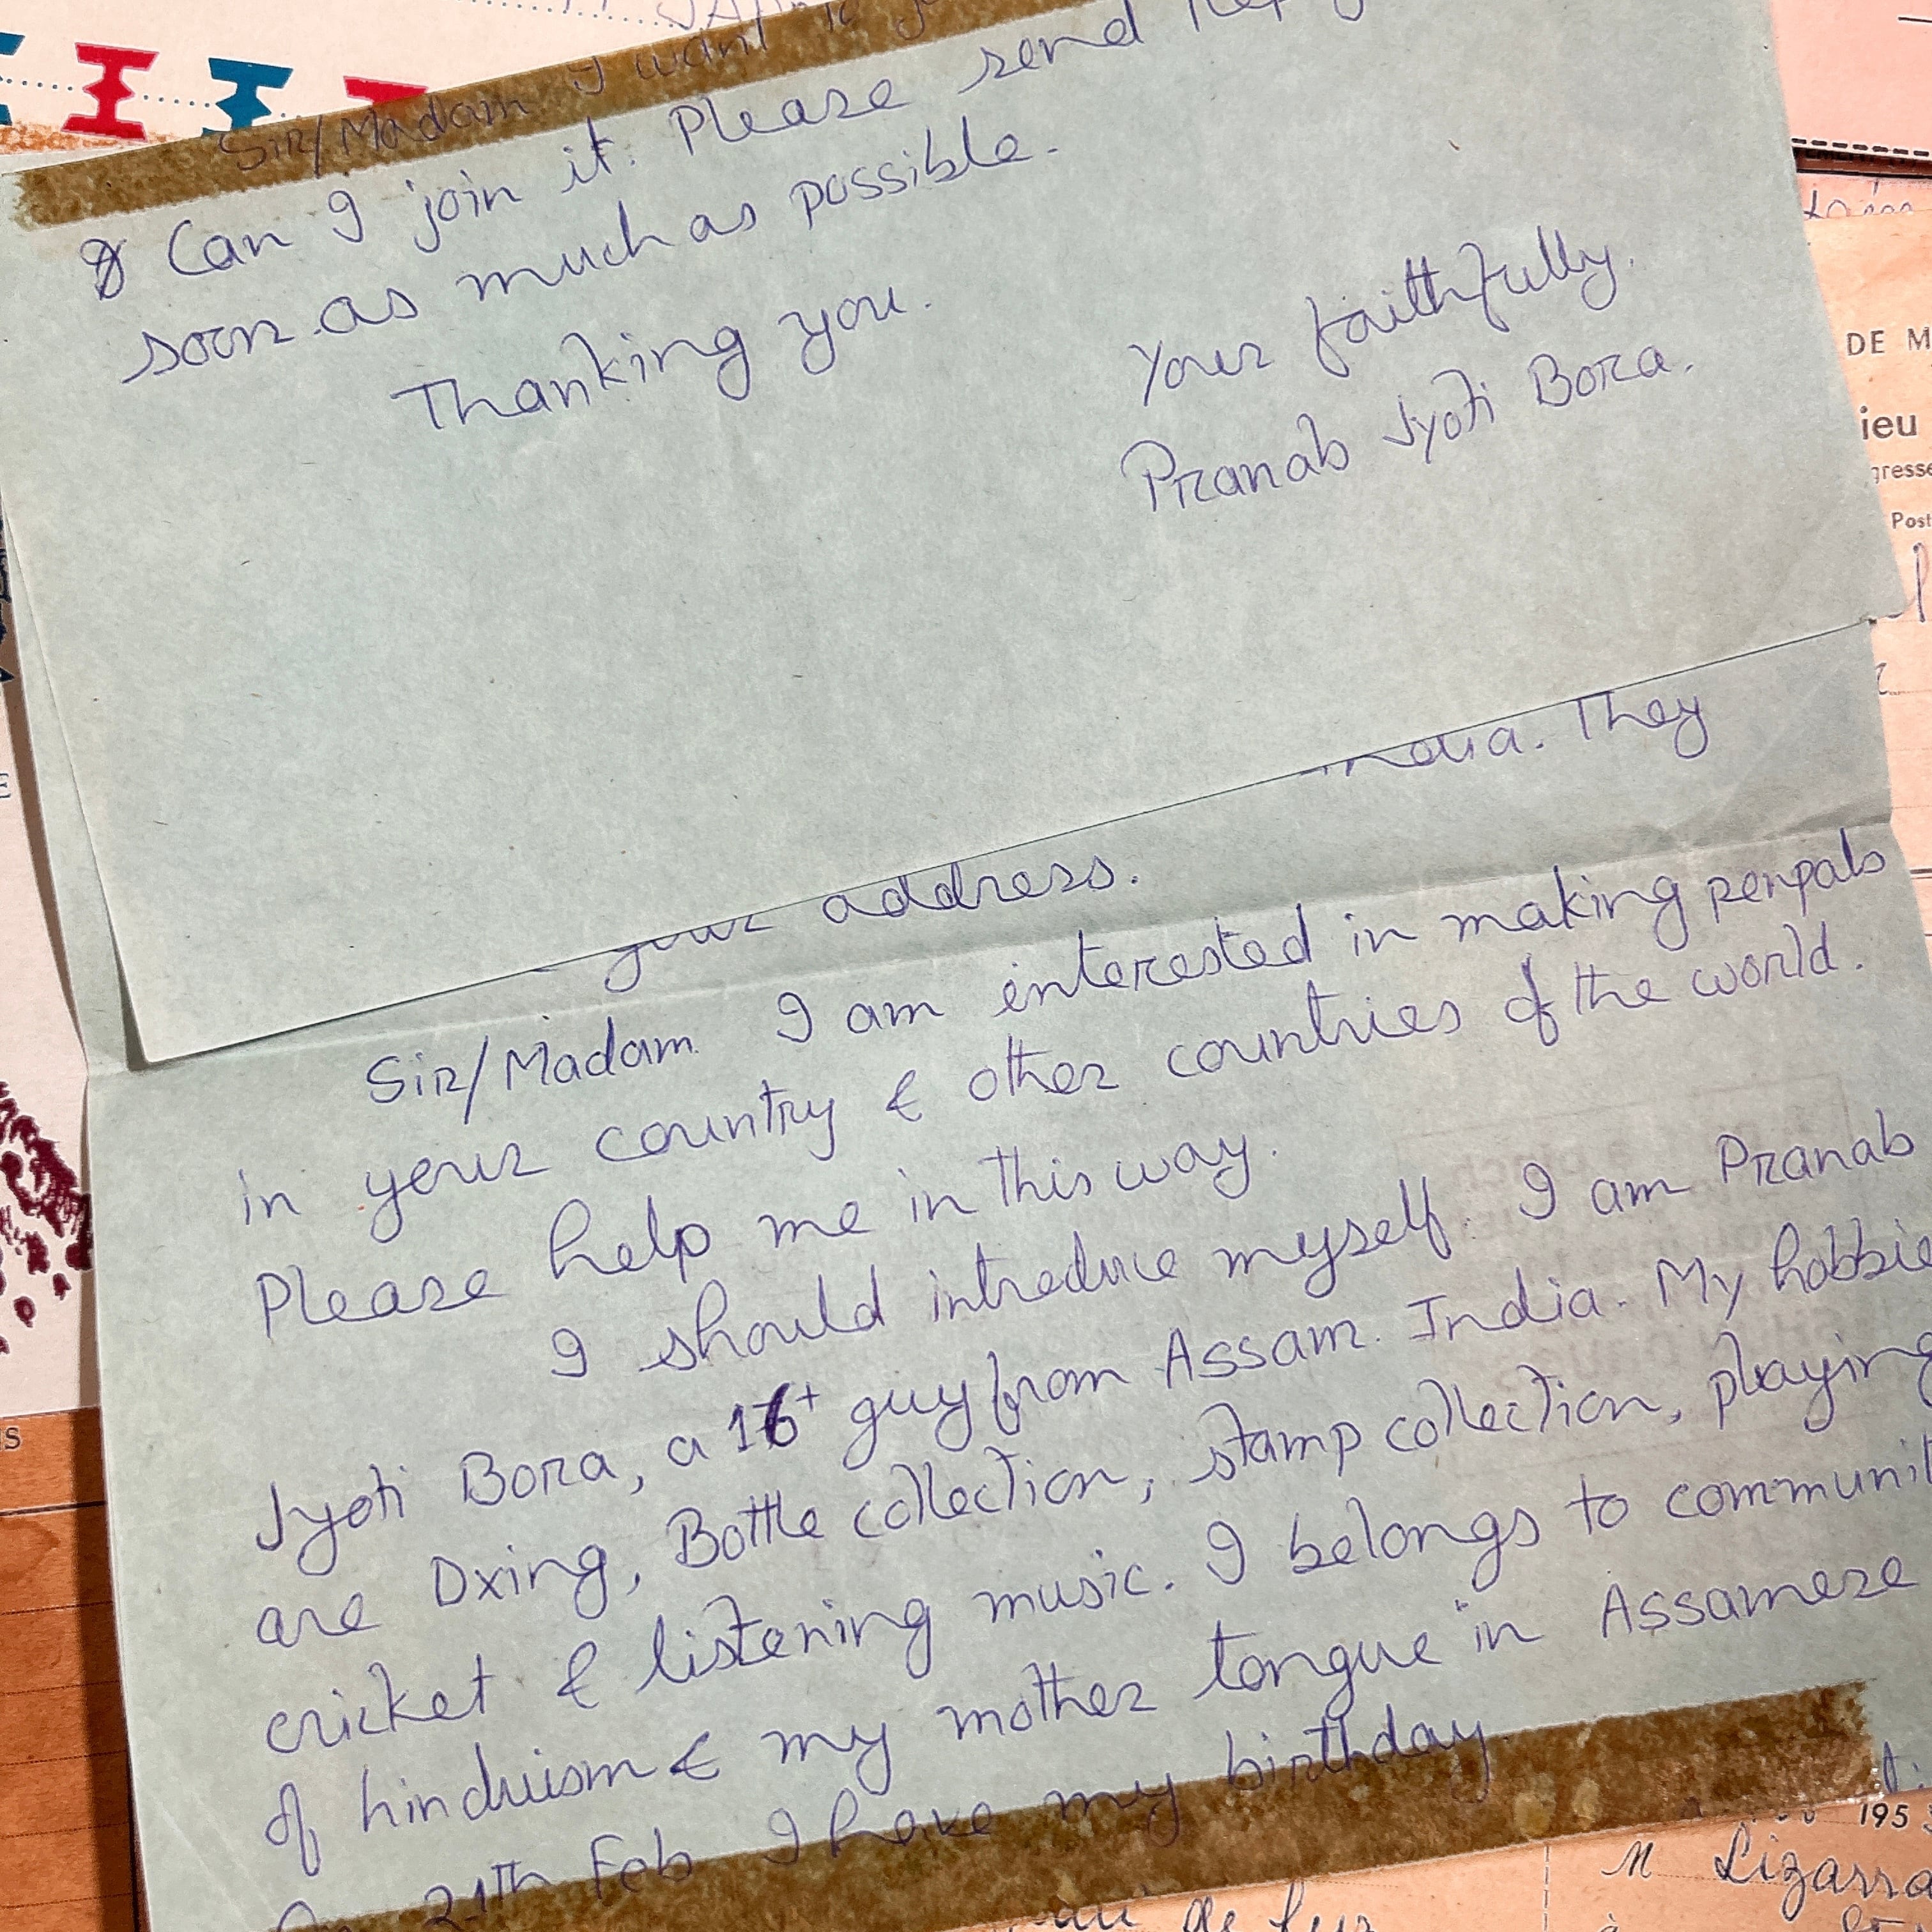 Sir/Madam I want to
& Can I join it. Please send
soon as much as possible.
Thanking you.
Your faithfully.
Pranab Jyoti Bora.
India. They
your address.
Sir/Madam I am interested in making penpals
in your country & other countries of the world.
Please help me in this way.
I should introduce myself. I am Pranab
Jyoti Bora, a 16+ guy from Assam. India. My hobbie
are Dxing, Bottle collection, stamp collection, playing
cricket & listening music. I belongs to communit
of hinduism & my mother tongue in Assamese
On 21th Feb I have my birthday.
DE M
ieu
gresse
Post
195
M Lizarra
de